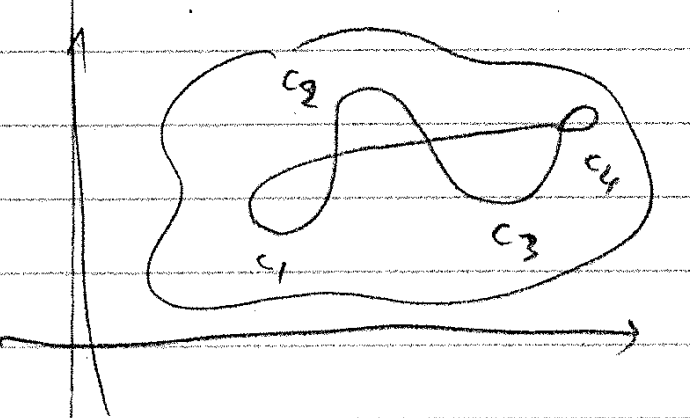 C2
C4
C3
C1